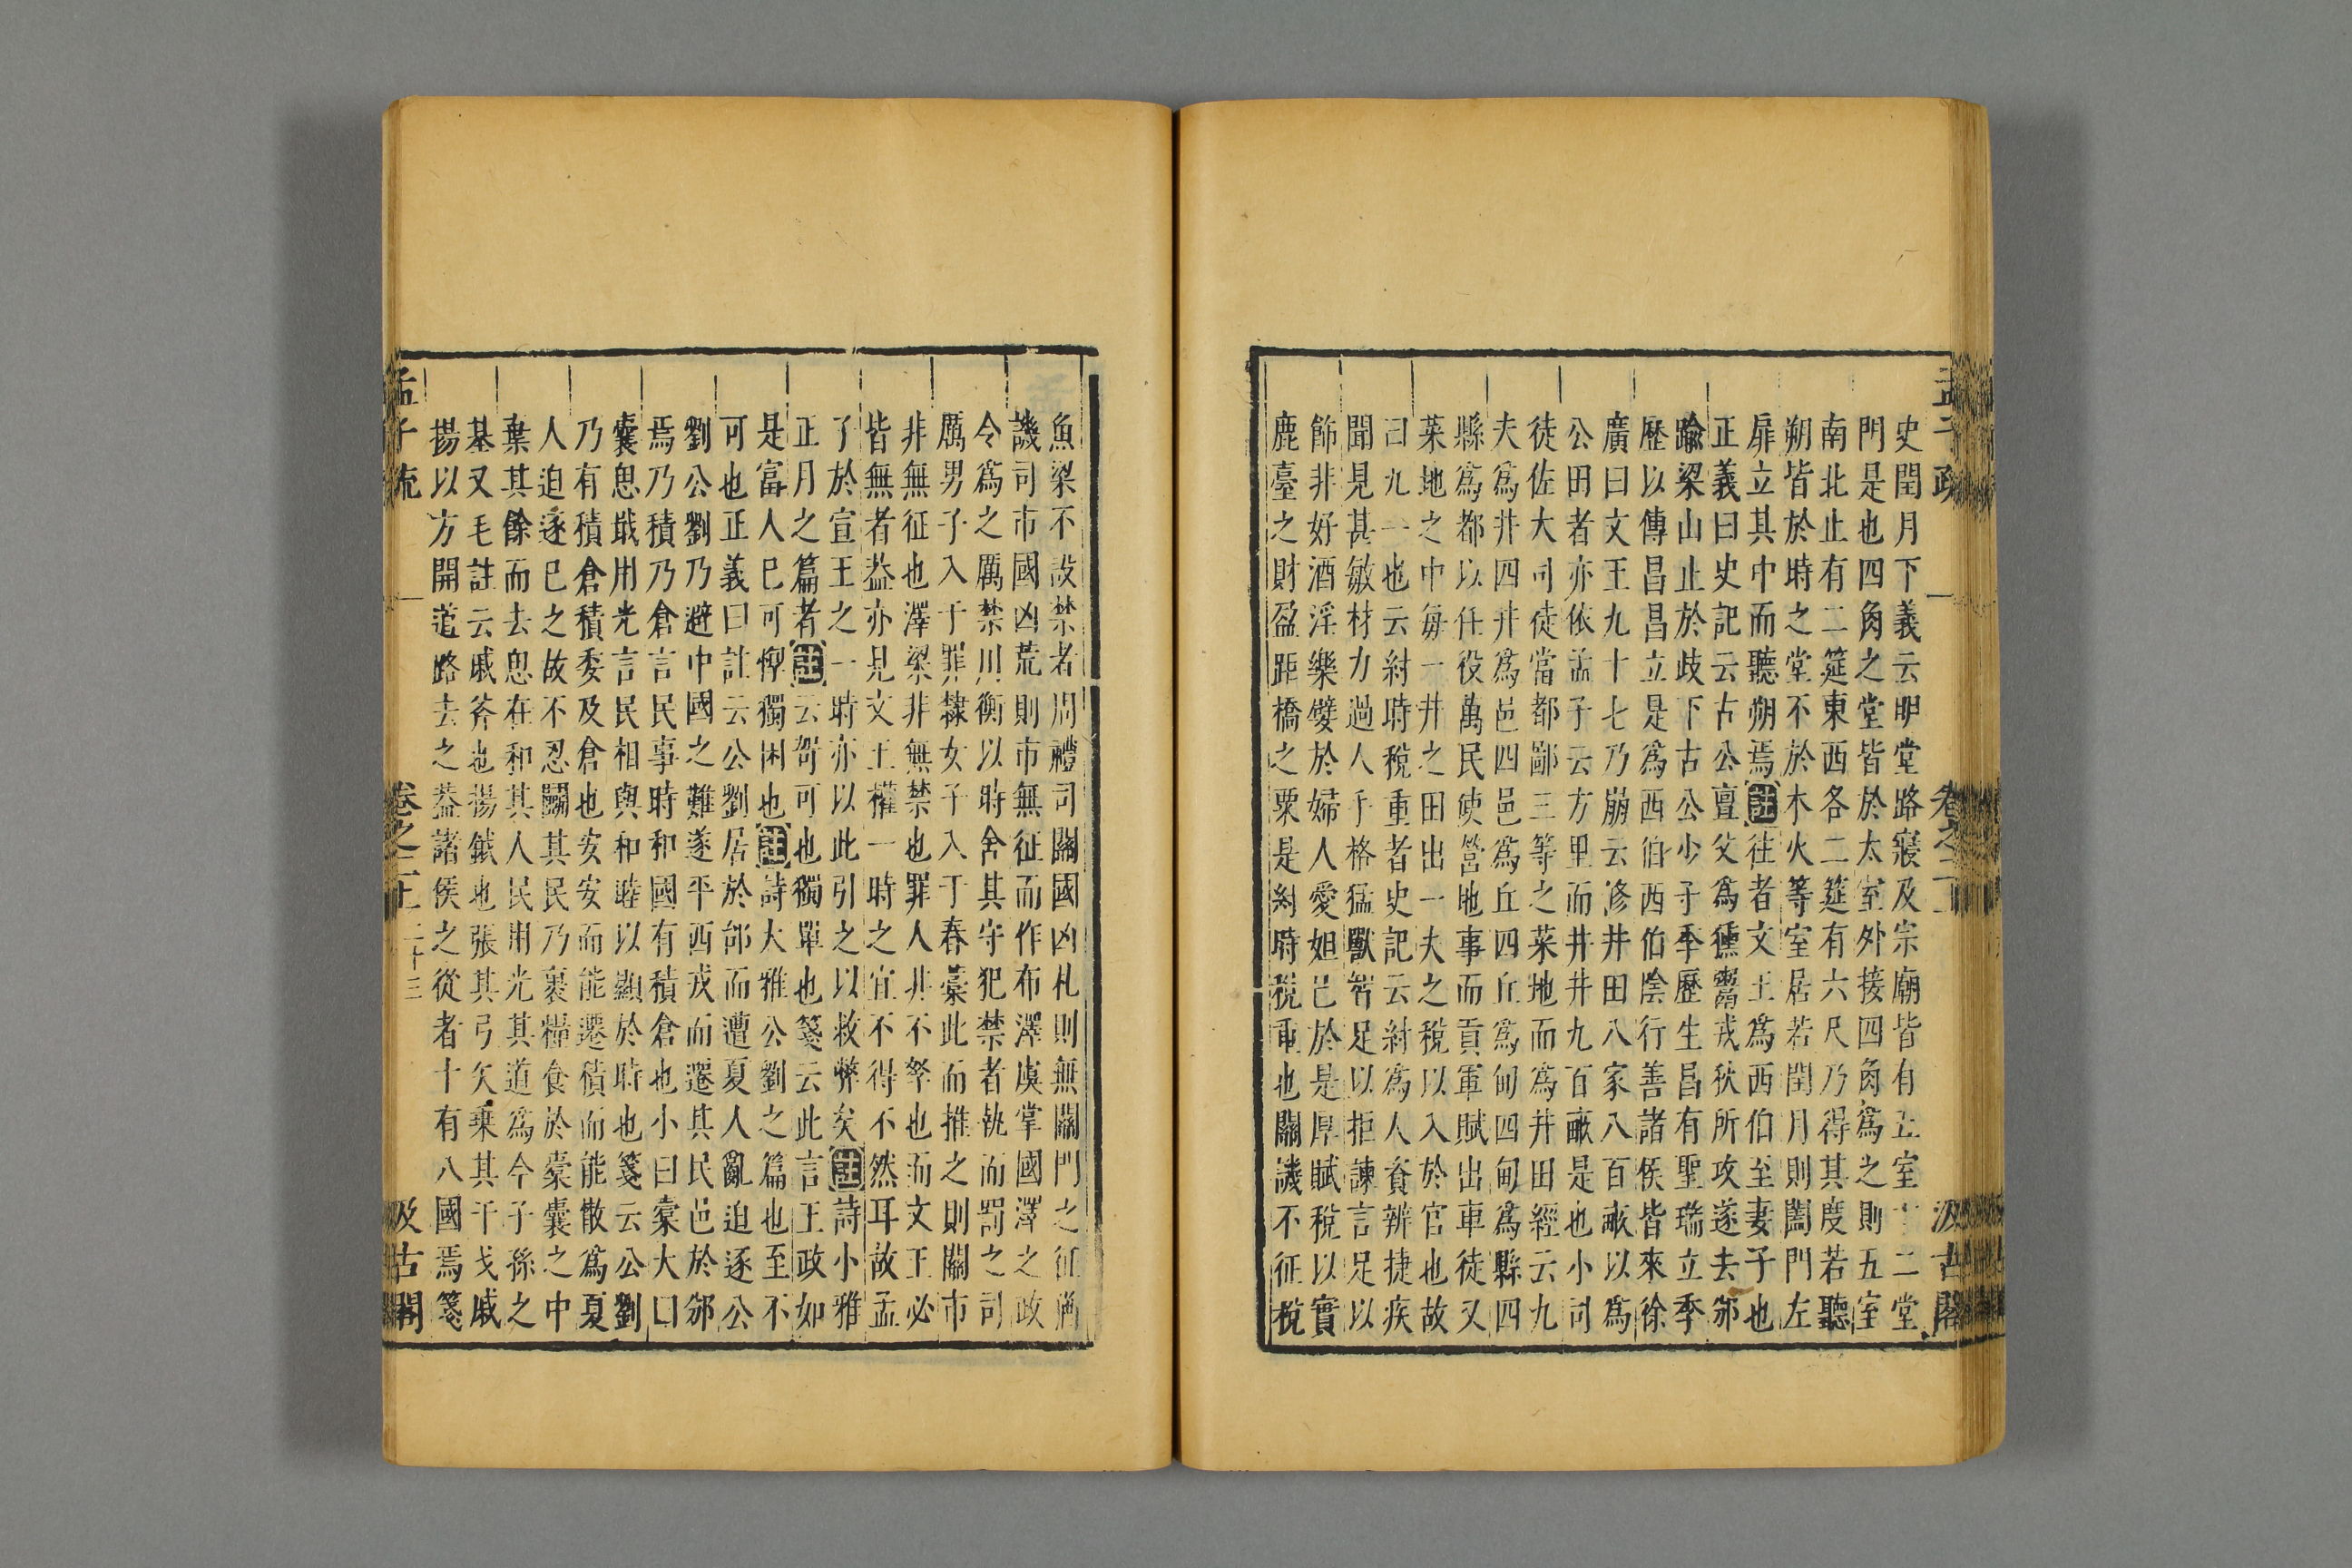 史閏月下義云明堂路寢及宗廟皆有五室十二堂
門是也四角之堂皆於太室外接四角爲之則五室
南北止有二筵東西各二筵有六尺乃得其度若聽
朔皆於時之堂不於木火等室居若閏月則闔門左
扉立其中而聽朔焉註往者文王爲西伯至妻子也
正義曰史記云古公亶父爲獯鬻戎狄所攻遂去邠
踰梁山止於歧下古公少子季歷生昌有聖瑞立季
歷以傳昌昌立是爲西伯西伯陰行善諸侯皆來徐
廣曰文王九十七乃崩云修井田八家八百畝以爲
公田者亦依孟子云方里而井井九百畝是也小司
徒佐大司徒當都鄙三等之菜地而爲井田經云九
夫爲井四井爲邑四邑爲丘四丘爲甸四甸爲縣四
縣爲都以任役萬民使營地事而貢軍賦出車徒又
菜地之中毎一井之田出一夫之稅以入於官也故
曰九一也云紂時稅重者史記云紂爲人資辨捷疾
聞見甚敏材力過人手格猛獸智足以拒諫言足以
飾非好酒淫樂嬖於婦人愛妲巳於是厚賦稅以實
鹿臺之財盈距橋之粟是紂時稅重也關譏不征稅
孟子疏
卷之二上
二十三
汲古閣
魚梁不設禁者周禮司關國凶札則無關門之征猶
譏司市國凶荒則市無征而作布澤虞掌國澤之政
令爲之厲禁川衡以時舍其守犯禁者執而罰之司
厲男子入于罪隸女子入于舂藁此而推之則關市
非無征也澤梁非無禁也罪人非不孥也而文王必
皆無者葢亦見文王權一時之宜不得不然耳故孟
子於宣王之一時亦以此引之以救弊矣註詩小雅
正月之篇者註云哿可也獨單也箋云此言王政如
是富人巳可惸獨困也註詩大雅公劉之篇也至不
可也正義曰註云公劉居於邰而遭夏人亂迫逐公
劉公劉乃避中國之難遂平西戎而遷其民邑於邠
焉乃積乃倉言民事時和國有積倉也小曰橐大曰
囊思戢用光言民相與和睦以顯於時也箋云公劉
乃有積倉積委及倉也安安而能遷積而能散爲夏
人迫逐巳之故不忍鬭其民乃裹糧食於橐囊之中
棄其餘而去思在和其人民用光其道爲今子孫之
基又毛註云戚斧也揚鉞也張其弓矢秉其干戈戚
揚以方開道路去之葢諸侯之從者十有八國焉箋